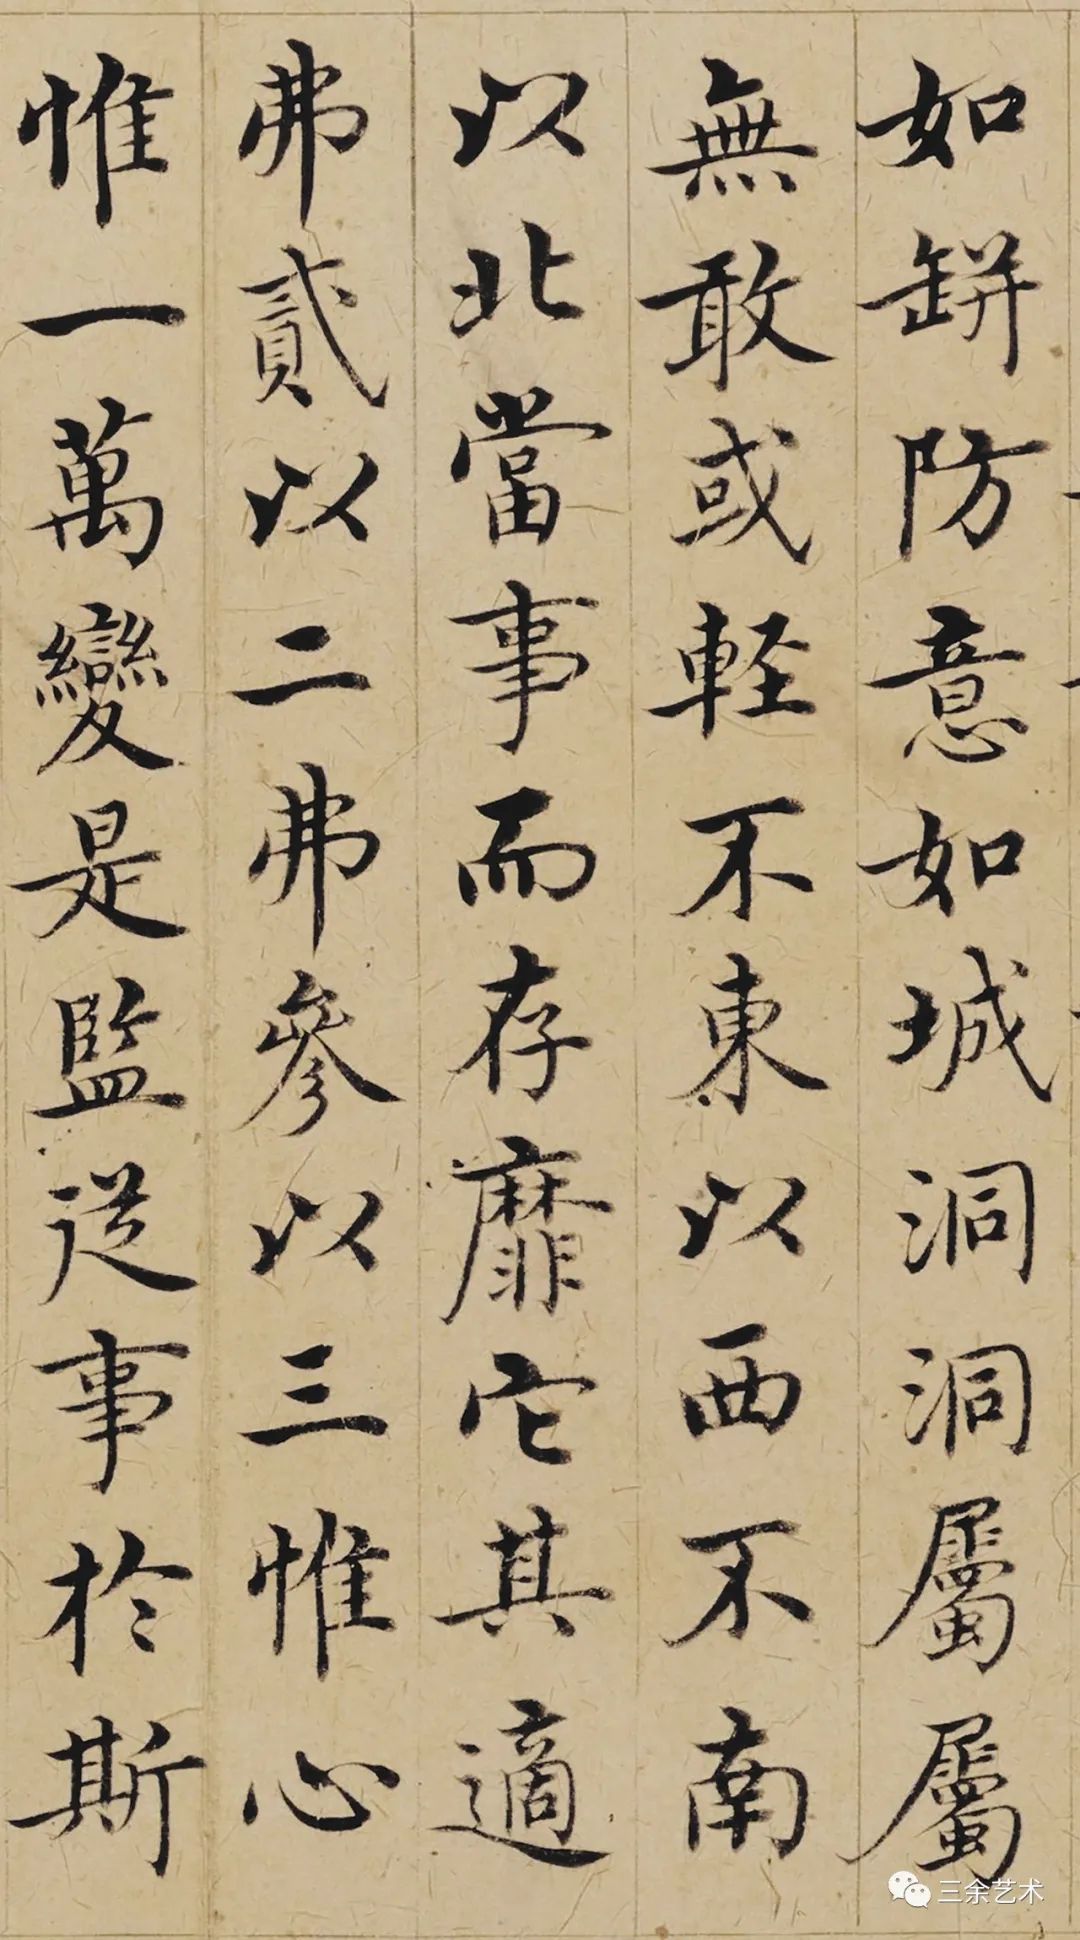 如缾防意如城洞洞屬屬
無敢或軽不東以西不南
以北當事而存靡它其適
弗貳以二弗參以三惟心
惟一萬變是監従事於斯
三余艺术